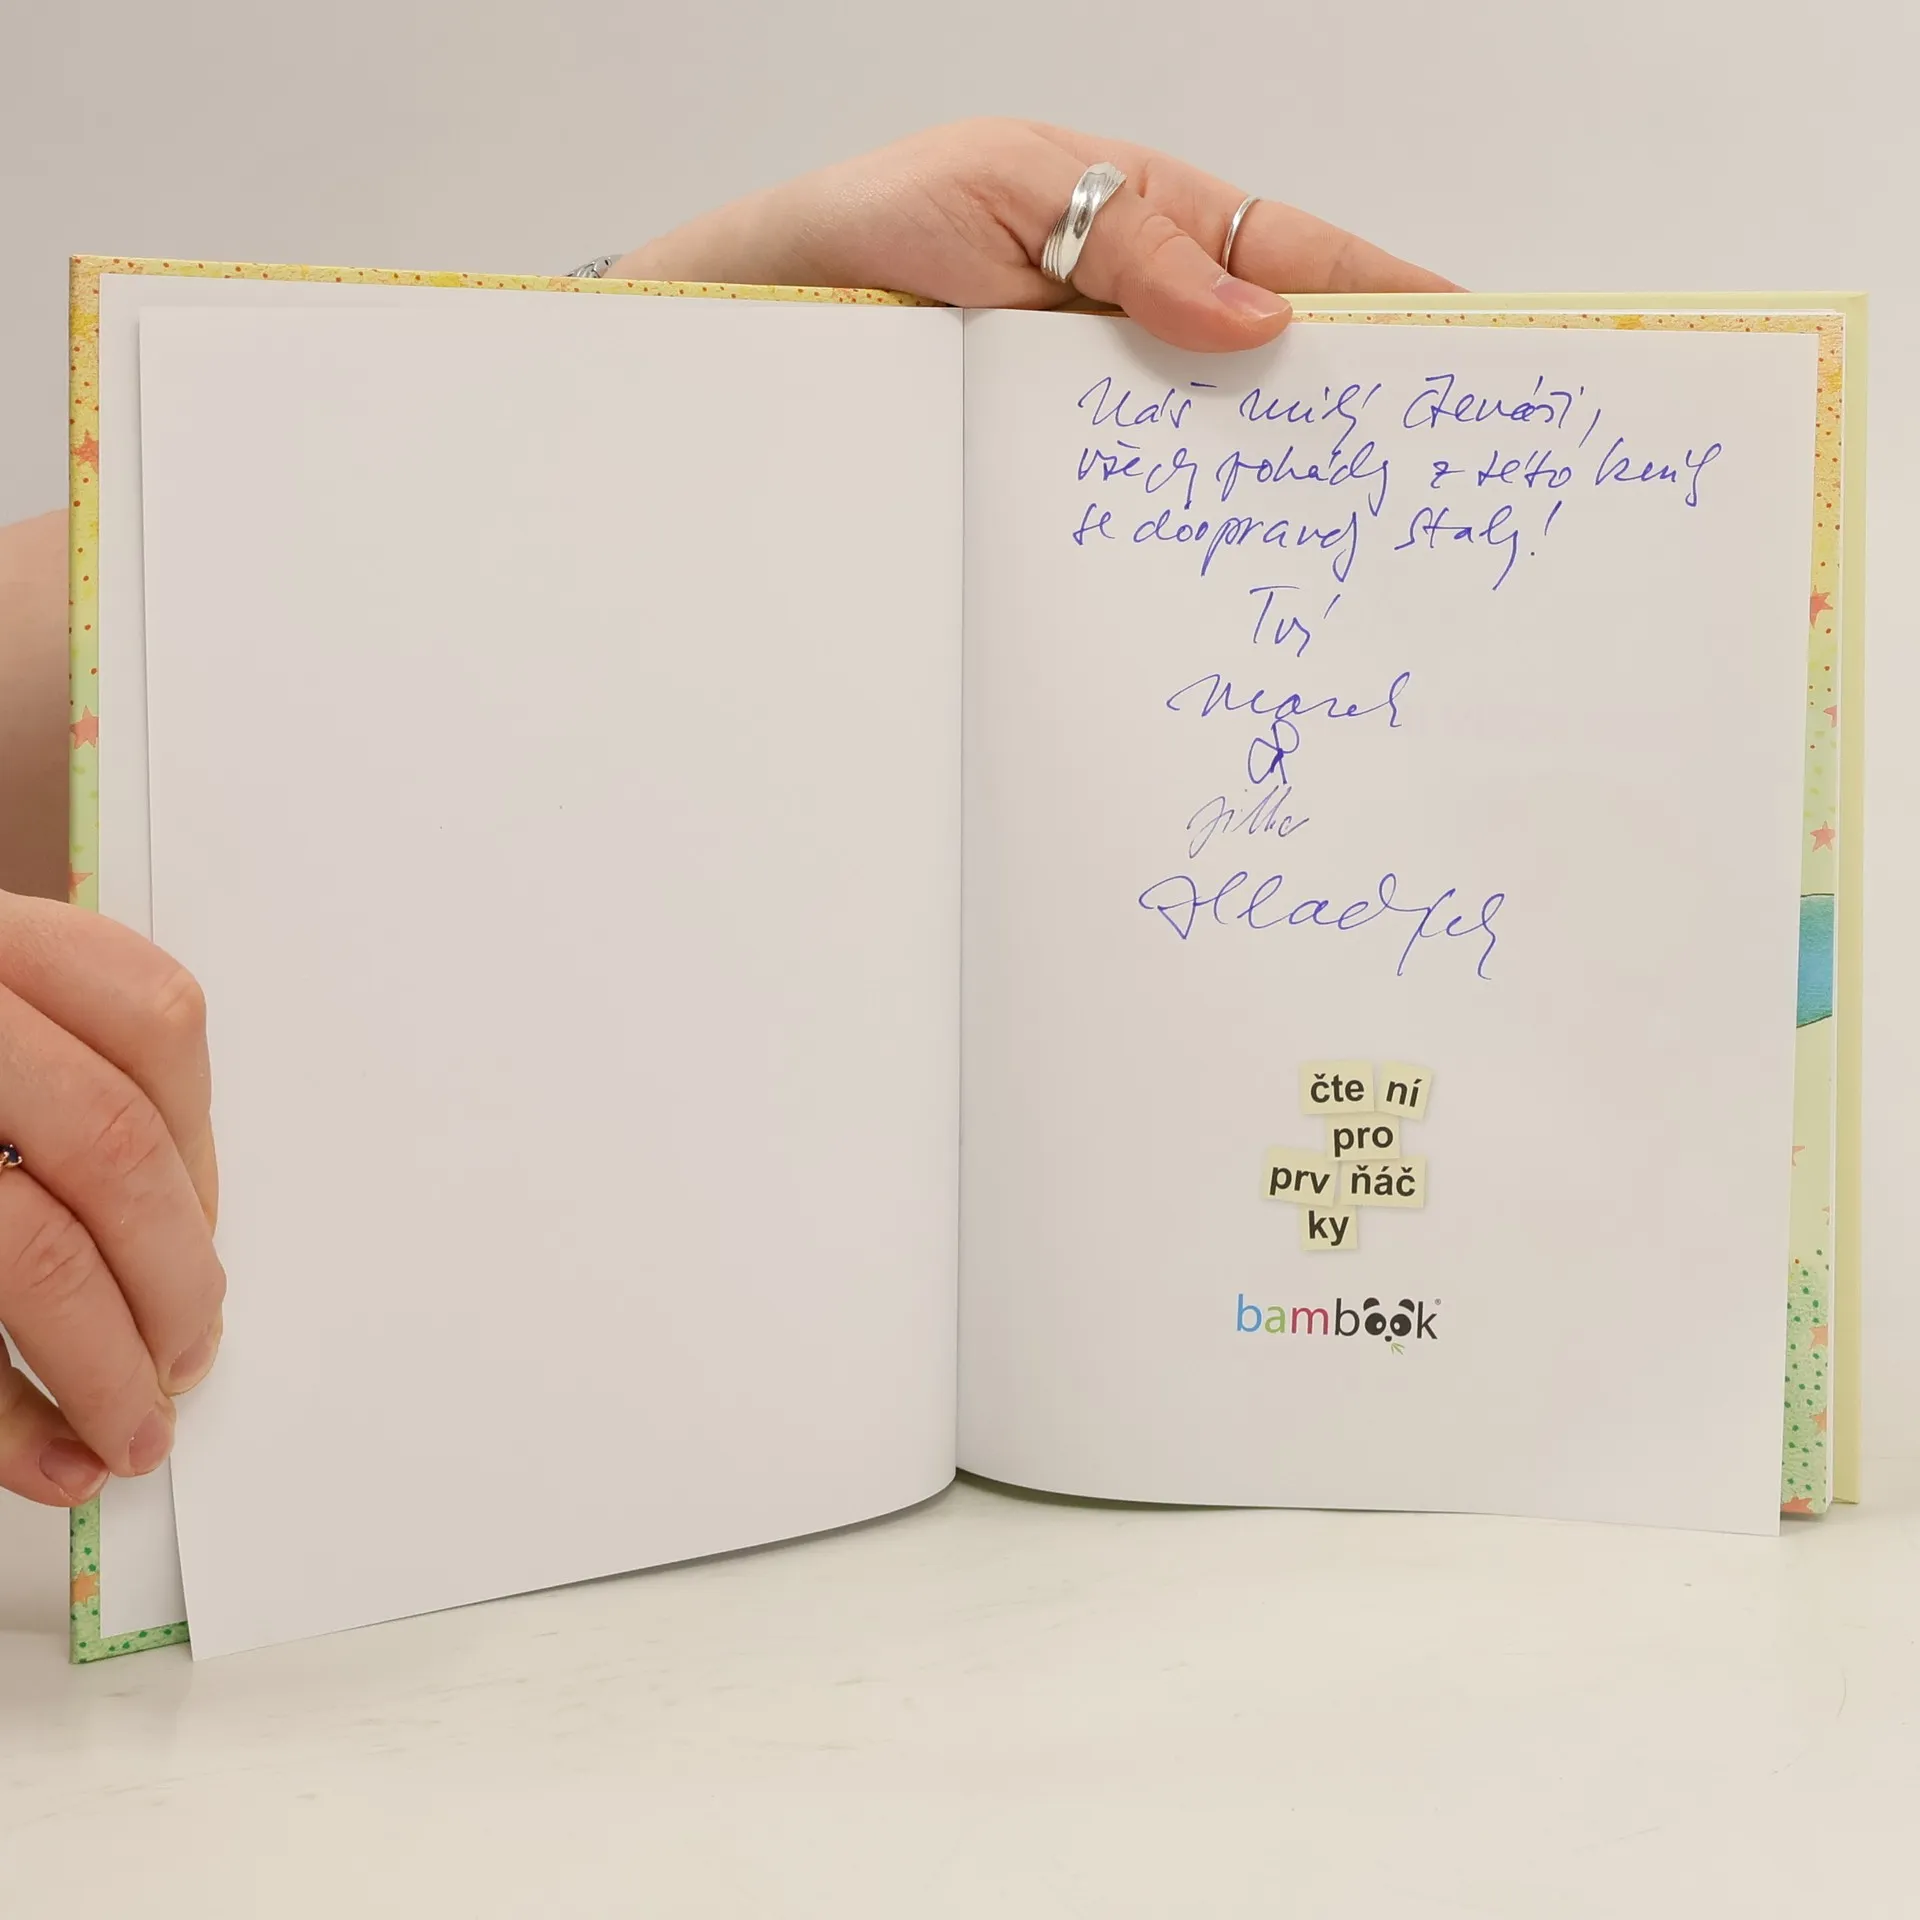 Náš milý čtenáři,
všechy pohády z této knihy
se doopravdy staly!
Tvý
Marek
&
Jitka
čte ní
pro
prv ňáč
ky
bambook